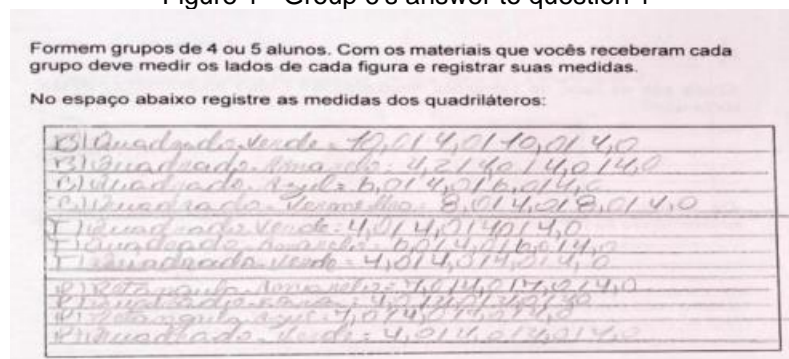 Figure 1 - Group 3's answer to question 1
Formem grupos de 4 ou 5 alunos. Com os materiais que vocês receberam cada
grupo deve medir os lados de cada figura e registrar suas medidas.
No espaço abaixo registre as medidas dos quadriláteros:
B) Quadrado Verde = 10,0 / 4,0 / 10,0 / 4,0
B) Quadrado Amarelo: 4,2 / 4,0 / 4,0 / 4,0
C) Quadrado Azul = 6,0 / 4,0 / 6,0 / 4,0
C) Quadrado Vermelho = 8,0 / 4,0 / 8,0 / 4,0
Quadrado Verde = 4,0 / 4,0 / 4,0 / 4,0
Quadrado Amarelo = 6,0 / 4,0 / 6,0 / 4,0
Quadrado Verde = 4,0 / 4,0 / 4,0 / 4,0
Retângulo Amarelo = 7,0 / 4,0 / 7,0 / 4,0
Quadrado
Retângulo Azul = 7,0 / 4,0 / 7,0 / 4,0
Quadrado Verde = 4,0 / 4,0 / 4,0 / 4,0